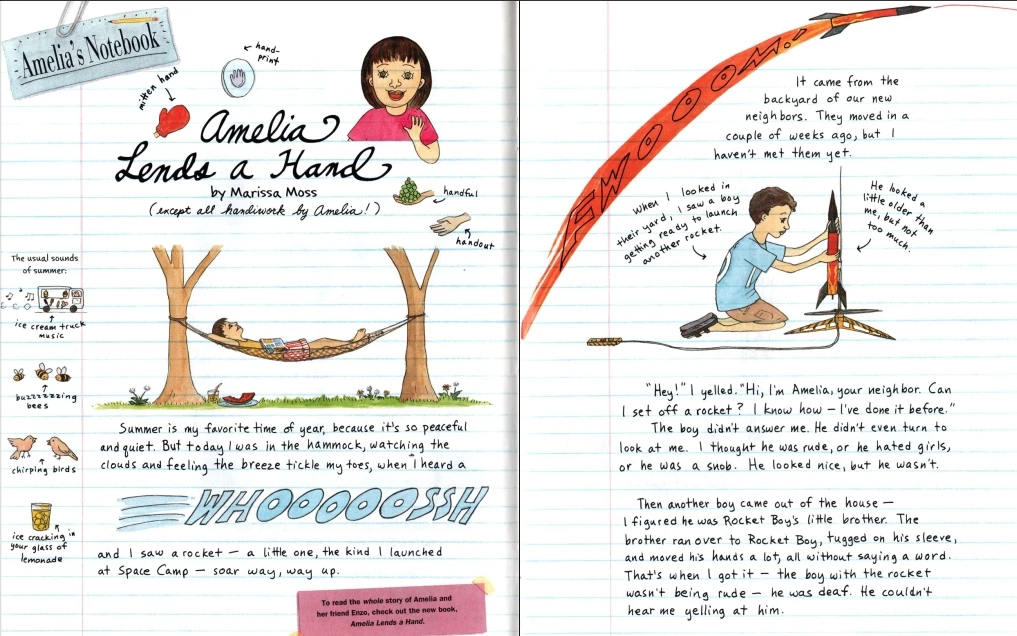 Amelia's Notebook
hand-
print
mitten hand
Amelia
Lends a Hand
by Marissa Moss
(except all handiwork by Amelia!)
handful
handout
The usual sounds
of summer:
ice cream truck
music
buzzzzzzing
bees
chirping birds
ice cracking in
your glass of
lemonade
Summer is my favorite time of year, because it's so peaceful
and quiet. But today I was in the hammock, watching the
clouds and feeling the breeze tickle my toes, when I heard a
WHOOOOOSSH
and I saw a rocket — a little one, the kind I launched
at Space Camp — soar way, way up.
To read the whole story of Amelia and
her friend Enzo, check out the new book,
Amelia Lends a Hand.
FWOOOOM!
It came from the
backyard of our new
neighbors. They moved in a
couple of weeks ago, but I
haven't met them yet.
When I looked in
their yard, I saw a boy
getting ready to launch
another rocket.
He looked a
little older than
me, but not
too much.
"Hey!" I yelled. "Hi, I'm Amelia, your neighbor. Can
I set off a rocket? I know how — I've done it before."
The boy didn't answer me. He didn't even turn to
look at me. I thought he was rude, or he hated girls,
or he was a snob. He looked nice, but he wasn't.
Then another boy came out of the house —
I figured he was Rocket Boy's little brother. The
brother ran over to Rocket Boy, tugged on his sleeve,
and moved his hands a lot, all without saying a word.
That's when I got it — the boy with the rocket
wasn't being rude — he was deaf. He couldn't
hear me yelling at him.